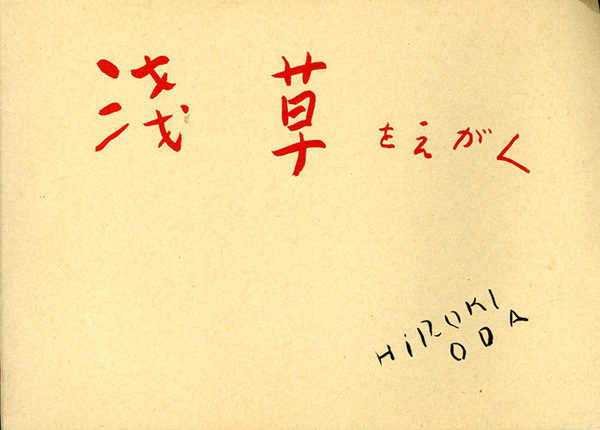 浅草をえがく
HiROKI
ODA